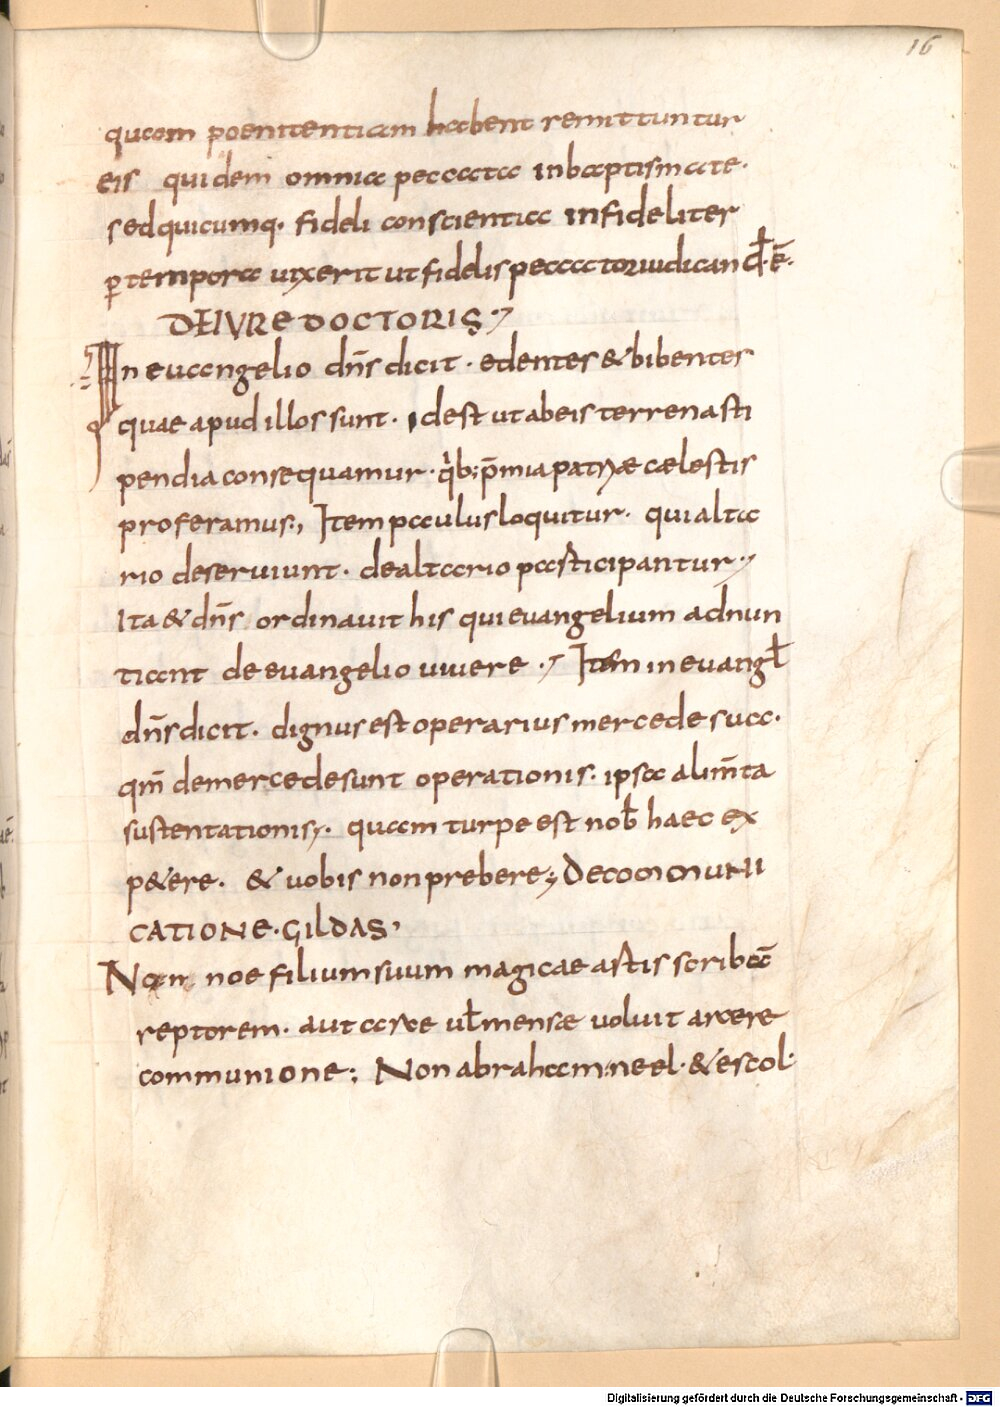 16
quam poenitentiam habent remittuntur
eis quidem omnia peccata inbaptismate·
sedquicumq· fideli conscientia infideliter
ꝑ tempora uixerit utfidelispeccator iudicand̄·ē·
DE IVRE DOCTORIS·
In euangelio dn̄s dicit· edentes & bibentes
quae apud illos sunt· idest utabeis terrenasti
pendia consequamur· qͥb; p̄mia patriæ cælestis
proferamus·, Item paulus loquitur· qui alta
rio deseruiunt· dealtario pasticipantur·
Ita & dn̄s ordinauit his qui evangelium adnun
tiant de evangelio uiuere· Item in evangł
dn̄s dicit· dignus est operarius mercede sua·
qm̄ demercedesunt operationis· ipsa alim̄ta
sustentationis· quam turpe est nob̄ haec ex
p&ere· & uobis non prebere; Decommuni
catione·gildas·
Nam noe filium suum magicae astis scribaē
reptorem· aut arcæ ul̄ mensæ uoluit arcere
communione; Non abraham neel· & escol·
Digitalisierung gefördert durch die Deutsche Forschungsgemeinschaft - DFG